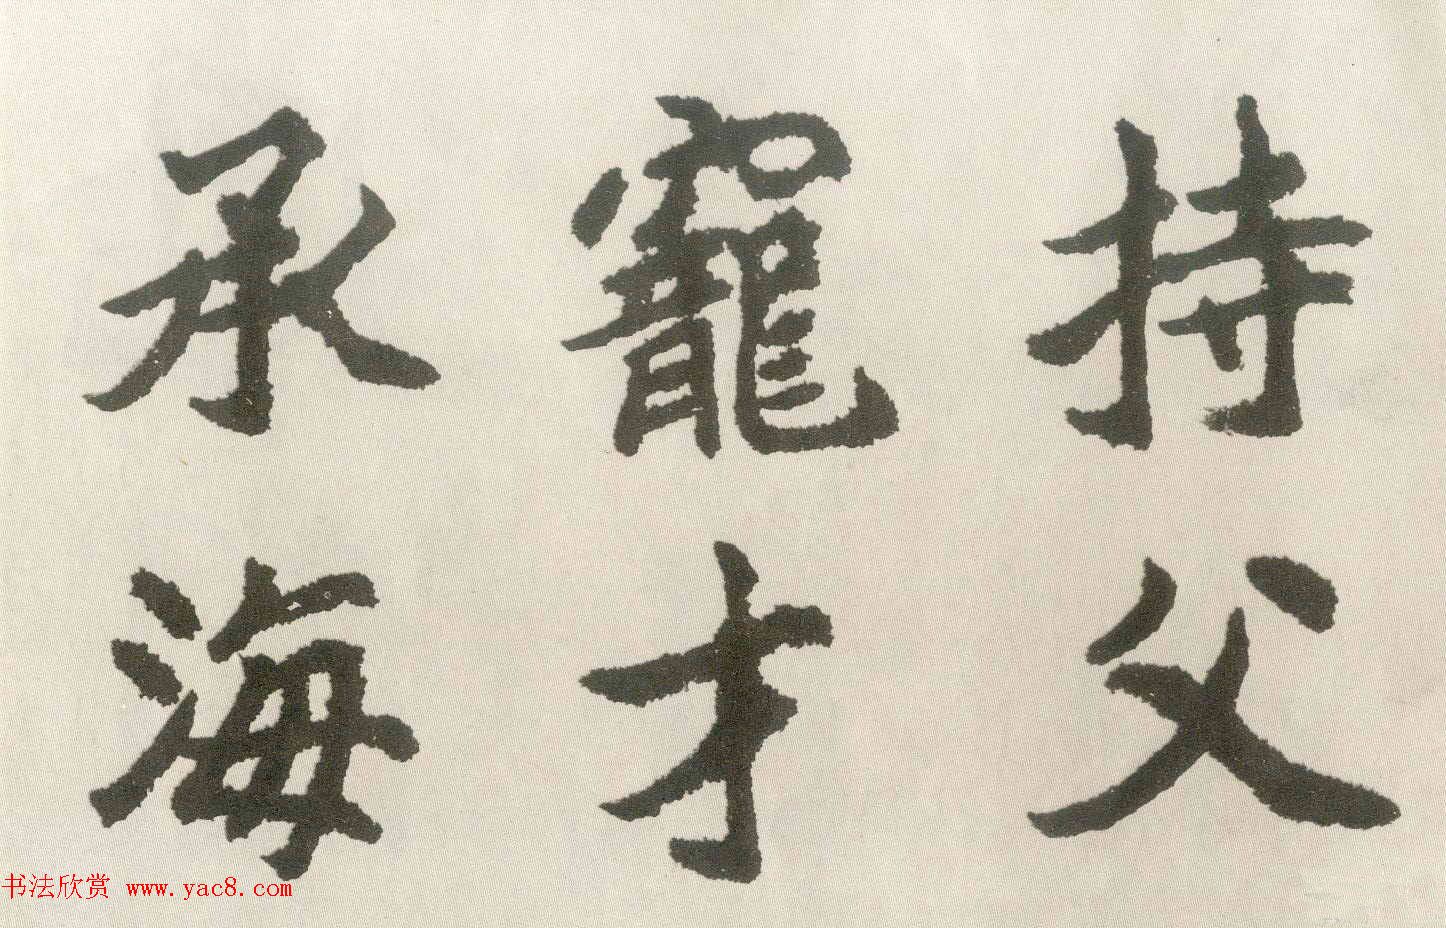 持父
寵才
承海
书法欣赏 www.yac8.com